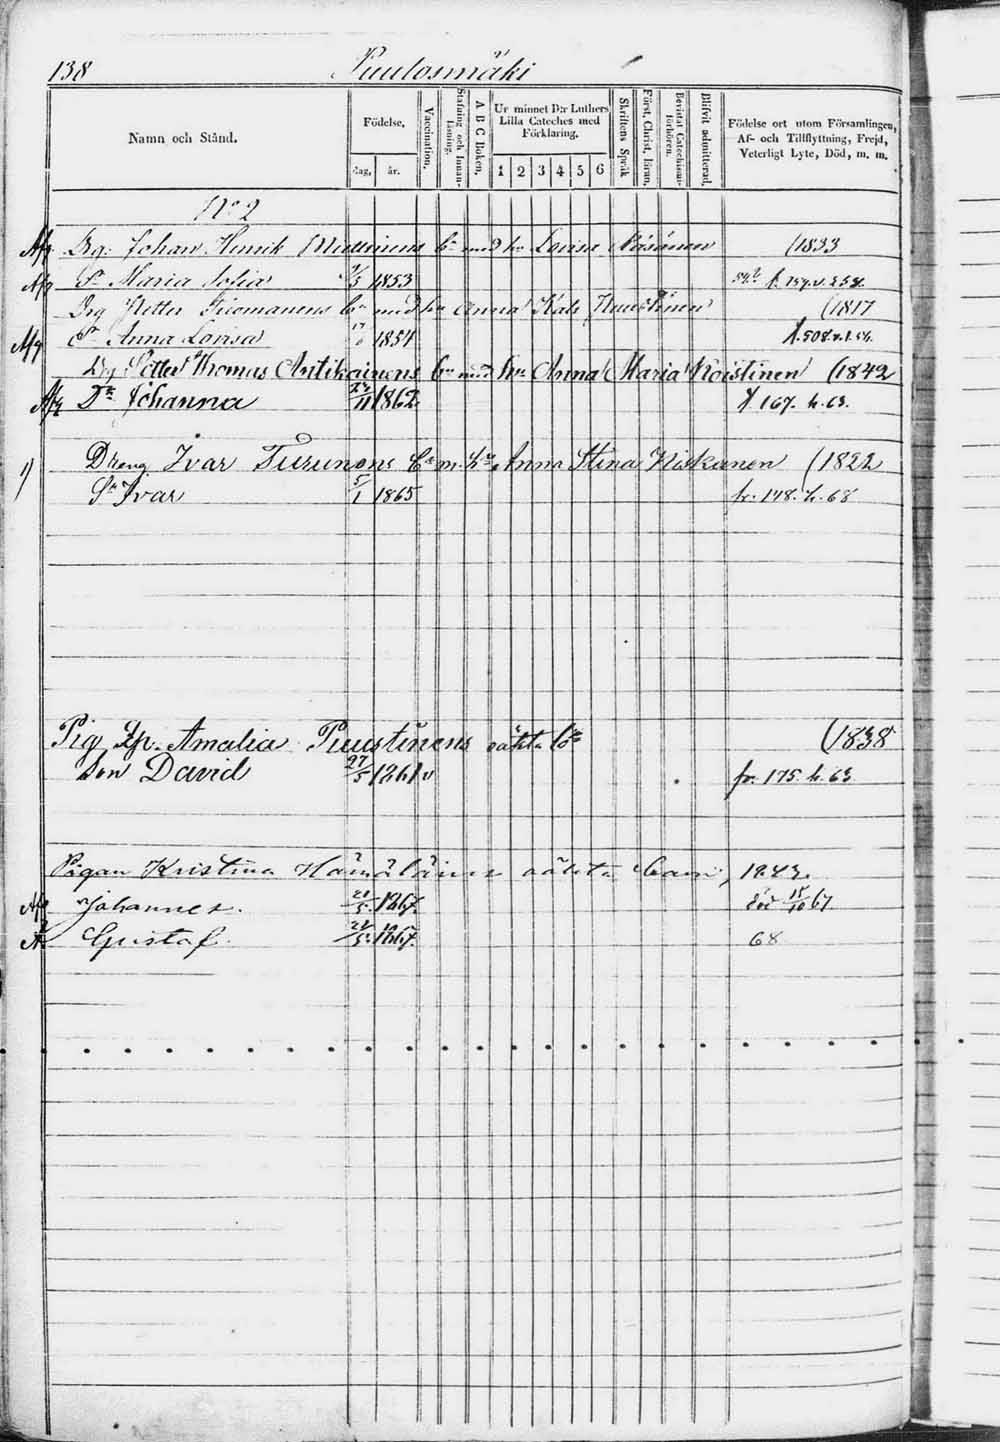 138 Puulosmäki
Namn och Stånd.
Födelse,
dag, år.
Vaccination.
Stafning och Innanläsning.
A B C Boken.
Ur minnet D:r Luthers Lilla Cateches med Förklaring.
1 2 3 4 5 6
Skriftens Språk
Först. Christ. läran.
Bevistat Catechismiförhören.
Blifvit admitterad.
Födelse ort utom Församlingen, Af- och Tillflyttning, Frejd, Veterligt Lyte, Död, m. m.
No 2
Afg Drg. Johan Henrik Miettinens bn med hu Lovisa Räsänen (1833
Afg Dr Maria Sofia 1853
Drg Petter Tiromanens bn med hu Anna Kais Puustinen (1817
Afg Dr Anna Lovisa 1854
Drg Petter Thomas Antikainens bn med hu Anna Maria Koistinen (1842
Afg Dr Johanna 24/11 1862 167. h. 63.
Dreng Ivar Turunens Bn m. hu Anna Stina Kiiskanen (1822
Sn Ivar 5/1 1865 fr. 148. h. 68
Pig Amalia Puustinens oäkta bn (1838
Son David 27/5 1861 v fr. 175. h. 63
Pigan Kristina Hämäläinens oäkta barn, 1843.
Afg Johannes. 28/5. 1867. död 15/10 67.
Gustaf. 28/5. 1867. 68